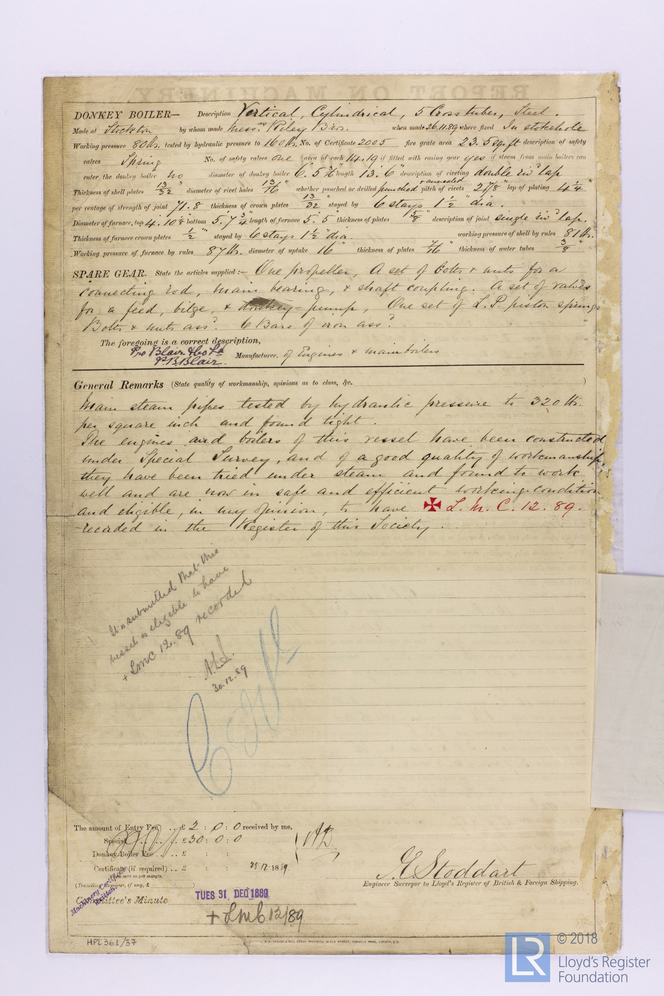 DONKEY BOILER— Description Vertical, Cylindrical, 5 Cross tubes, Steel.
Made at Stockton by whom made Messrs Riley Bros. when made 26.11.89 where fixed In stokehole
Working pressure 80 lbs. tested by hydraulic pressure to 160 lbs. No. of Certificate 2005 fire grate area 23.5 sq ft description of safety
valves Spring No. of safety valves one area of each 14.19 if fitted with easing gear yes if steam from main boilers can
enter the donkey boiler no diameter of donkey boiler 6.5¾ length 13.6 description of riveting double riv lap
Thickness of shell plates 13/32" diameter of rivet holes 13/16" whether punched or drilled punched pitch of rivets 2 7/8" lap of plating 4¼"
per centage of strength of joint 71.8 thickness of crown plates 13/32" stayed by 6 stays 1½" dia.
Diameter of furnace, top 4.10⅛ bottom 5.7¾ length of furnace 5.5 thickness of plates description of joint single riv lap.
Thickness of furnace crown plates ½" stayed by 6 stays 1½ dia. working pressure of shell by rules 81 lbs.
Working pressure of furnace by rules 87 lbs. diameter of uptake 16" thickness of plates 7/16 thickness of water tubes 3/8"
SPARE GEAR. State the articles supplied:— One propeller, A set of bolts & nuts for a
connecting rod, main bearing, & shaft coupling. A set of valves
for, a feed, bilge, & donkey pump, One set of L.P piston springs
Bolts & nuts assd. 6 Bars of iron assd.
The foregoing is a correct description,
Pro Blair & Co Ld
P.B. Blair. Manufacturer. of Engines & main boilers
General Remarks (State quality of workmanship, opinions as to class, &c. )
Main steam pipes tested by hydraulic pressure to 320 lbs.
per square inch and found tight.
The engines and boilers of this vessel have been constructed
under Special Survey, and of a good quality of workmanship,
they have been tried under steam and found to work
well and are now in safe and efficient working condition
and eligible, in my opinion, to have ✠ L.M.C. 12.89.
recorded in the Register of this Society.
It is submitted that this
vessel is eligible to have
+ LMC 12.89 recorded
30.12.89
The amount of Entry Fee .. £ 2 : 0 : 0 received by me,
Special .. £ 30 : 0 : 0
Donkey Boiler Fee .. £
Certificate (if required) .. £ 28.12.1889
(Travelling Expenses, if any, £ )
J. E. Stoddart
Engineer Surveyor to Lloyd's Register of British & Foreign Shipping.
Committee's Minute
TUES 31 DEC 1889
+ LMC 12/89
HPL361/37
LR
© 2018
Lloyd's Register
Foundation